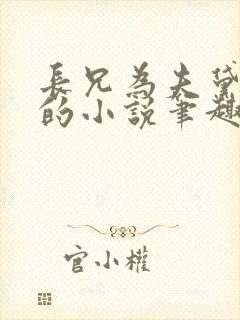 長兄為夫黛
的小說筆趣
官小權